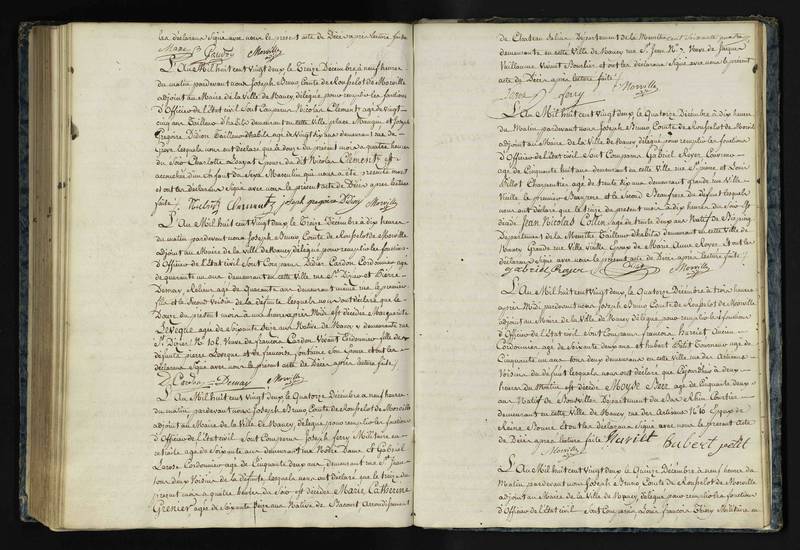 les déclarans Signé avec nous le present acte de Décès après lecture faite
Morville
L'An Mil huit cent Vingt deux le Treize Décembre à neuf heures
du matin pardevant nous Joseph Bruno Comte de Rouselot de Morville
adjoint au Maire de la Ville de Nancy, délégué pour remplir les fonctions
d'Officier de l'Etat civil Sont Comparus Nicolas Clement agé de Vingt
cinq ans Tailleur d'habits demeurant en cette Ville place Mengin et Joseph
Gregoire Didion Tailleur d'habits agé de Vingt six ans demeurant rue de
Grève lesquels nous ont déclaré que le douze du présent mois à quatre heures
du Soir Charlotte Epouse du dit Nicolas Clement est
accouchée d'un Enfant du Sexe Masculin qui nous a été présenté mort
et ont les déclarans Signé avec nous le présent acte de Décès après lecture
faite Clement Joseph gregoire Didion Morville
L'An Mil huit cent Vingt deux le Treize Décembre à dix heures
du matin pardevant nous Joseph Bruno Comte de Rouselot de Morville
adjoint au Maire de la Ville de Nancy délégué pour remplir les fonctions
d'Officier de l'Etat civil Sont Comparus Didier Cardon Cordonnier agé
de quarante un ans demeurant en cette Ville rue St Dizier et Pierre
Demay Relieur agé de quarante ans demeurant même rue le premier
fils et le Second Voisin de la défunte lesquels nous ont déclaré que le
Douze du présent mois à heures après Midi est décédée Marguerite
Levêque agée de Soixante Seize ans Native de Nancy y demeurant rue
St Dizier No 101 Veuve de françois Cardon Vivant Cordonnier fille de
défunts pierre Levêque et de françoise fontaine Son Epouse et ont les
déclarans Signé avec nous le présent acte de Décès après lecture faite
Cardon Demay Morville
L'An Mil huit cent Vingt deux le Quatorze Décembre à neuf heures
du matin, pardevant nous Joseph Bruno Comte de Rouselot de Morville
adjoint au Maire de la Ville de Nancy, délégué pour remplir les fonctions
d'Officier de l'Etat civil Sont Comparus Joseph ferry Militaire en
retraite agé de Soixante ans demeurant rue Notre Dame et Gabriel
Larose Cordonnier agé de Cinquante deux ans, demeurant rue St Jean
tous deux Voisins de la défunte lesquels nous ont déclaré que le treize du
présent mois à quatre heures du Soir est décédée Marie Catherine
Grenier agée de Soixante Seize ans Native de Bacourt arrondissement
de Chateau Salins Département de la Meurthe
demeurante en cette Ville de Nancy rue St Jean No 7 Veuve de Jacques
Vuillaume Vivant Boulier et ont les déclarans Signé avec nous le présent
acte de Décès après lecture faite
ferry Morville
L'An Mil huit cent Vingt deux, le Quatorze Décembre à dix heures
du Matin pardevant nous Joseph Bruno Comte de Rouselot de Morville
adjoint au Maire de la Ville de Nancy délégué pour remplir les fonctions
d'Officier de l'Etat civil Sont Comparus Gabriel Royer
agé de Cinquante huit ans demeurant en cette Ville rue et Louis
Millot Charpentier agé de trente six ans demeurant grande rue Ville
Vieille le premier et le Second Beaufrere du défunt lesquels
nous ont déclaré que le treize du présent mois à dix heures du Soir est
décédé Jean Nicolas Collin agé de trente deux ans Natif de
Département de la Meurthe Tailleur d'habits demeurant en cette Ville de
Nancy Grande rue Ville Vieille Epoux de Marie Anne Royer et ont les
déclarans Signé avec nous le présent acte de Décès après lecture faite
gabriel Royer Millot Morville
L'An Mil huit cent Vingt deux, le Quatorze Décembre à trois heures
après Midi pardevant nous Joseph Bruno Comte de Rouselot de Morville
adjoint au Maire de la Ville de Nancy, délégué pour remplir les fonctions
d'Officier de l'Etat civil Sont Comparus françois Ancien
Cordonnier agé de Soixante deux ans et hubert Petit Tourneur agé de
Cinquante un ans tous deux demeurans en cette Ville rue des Artisans
Voisins du défunt lesquels nous ont déclaré que Cejourdhui à deux
heures du Matin est décédé Moyse Bere agé de Cinquante deux
ans Natif de Bouxviller Département du Bas Rhin Courtier
demeurant en cette Ville de Nancy rue des Artisans No 16 Epoux de
Reine et ont les déclarans Signé avec nous le présent acte
de Décès après lecture faite hubert petit
Morville
L'An Mil huit cent Vingt deux le Quinze Décembre à neuf heures du
Matin pardevant nous Joseph Bruno Comte de Rouselot de Morville
adjoint au Maire de la Ville de Nancy délégué pour remplir les fonctions
d'Officier de l'Etat civil Sont Comparus françois Thiry Militaire en